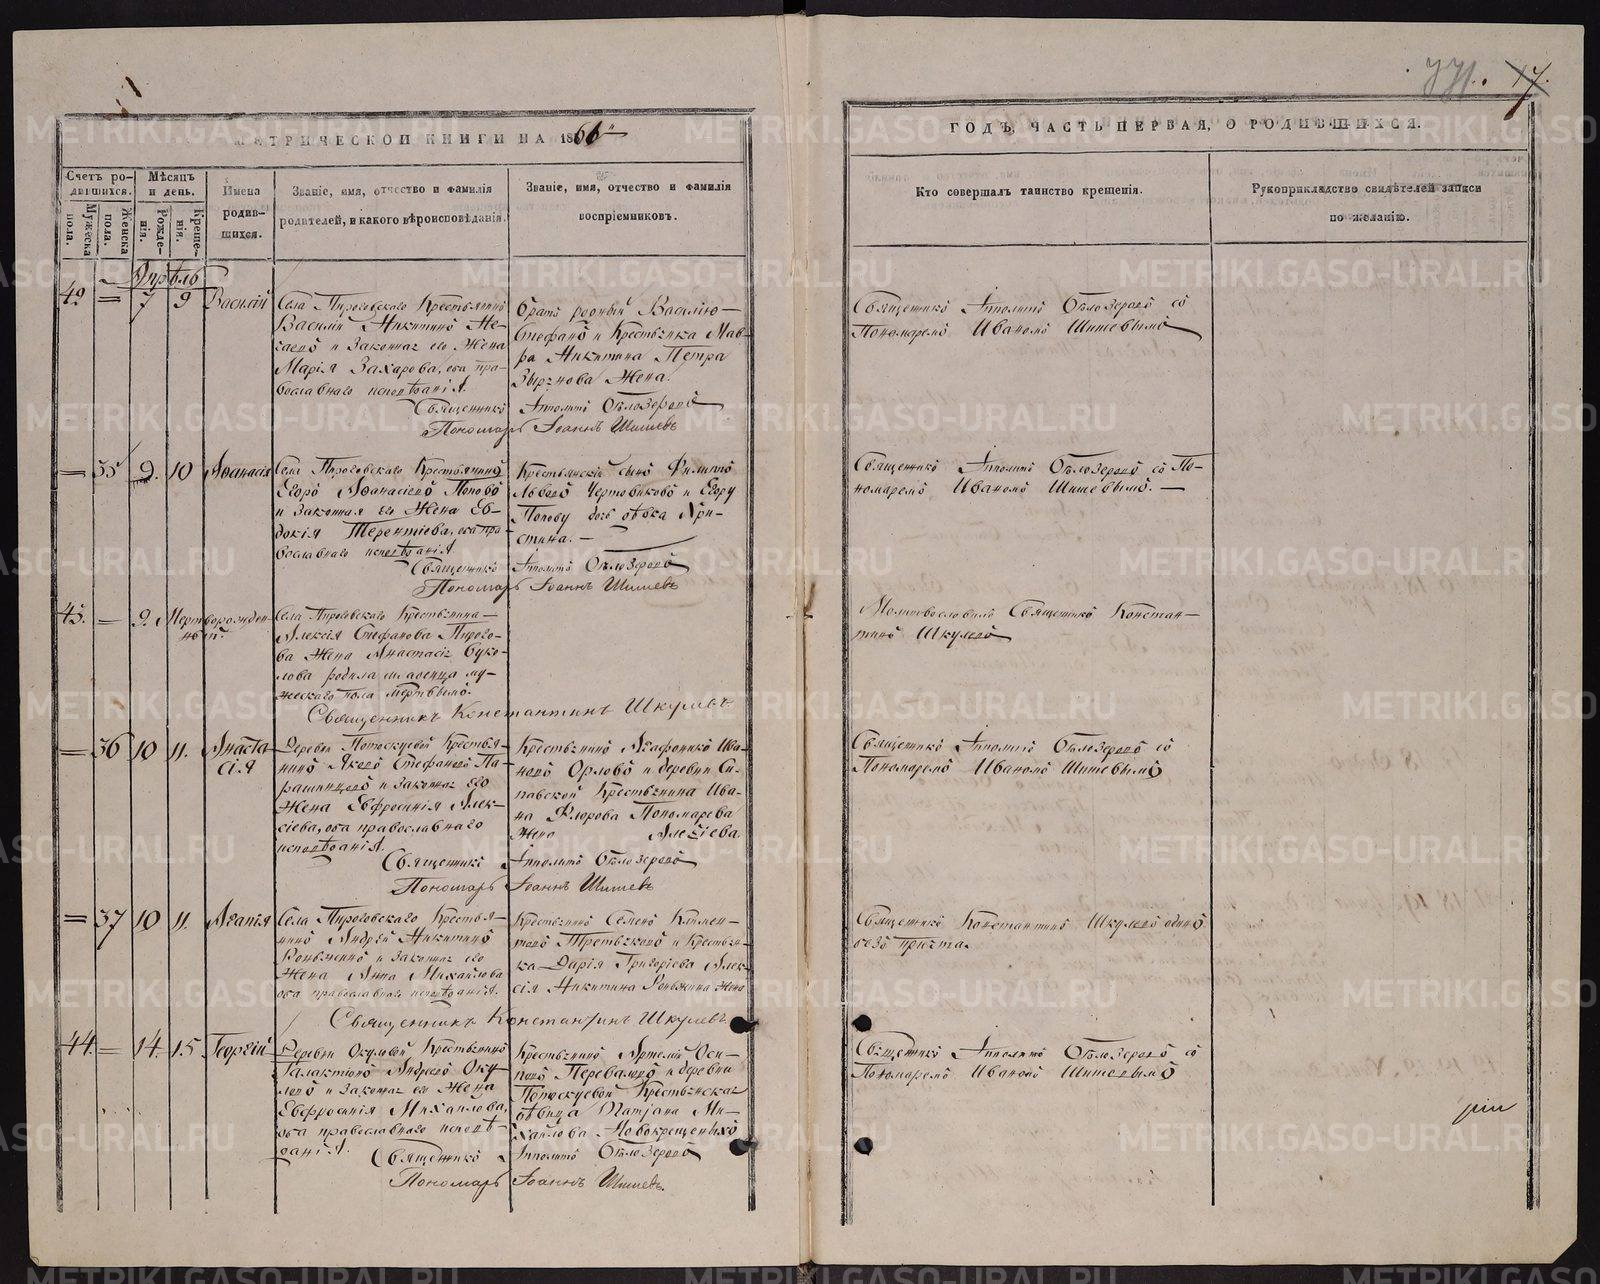 771. 17.
МЕТРИЧЕСКОЙ КНИГИ НА 1866
ГОДЪ, ЧАСТЬ ПЕРВАЯ, О РОДИВШИХСЯ.
Счетъ родившихся.
Мужеска пола.
Женска пола.
Мѣсяцъ и день.
Рожденія.
Крещенія.
Имена родившихся.
Званіе, имя, отчество и фамилія
родителей, и какого вѣроисповѣданія.
Званіе, имя, отчество и фамилія
воспріемниковъ.
Кто совершалъ таинство крещенія.
Рукоприкладство свидѣтелей записи
по желанію.
Апрѣль
42 = 7 9 Василій
Села Пироговскаго Крестьянинъ
Василій Никитинъ
и Законная его Жена
Марія Захарова, оба пра-
вославнаго исповѣданія.
братъ родный Василію
Стефанъ и Крестьянка Мав-
ра Никитина Петра
Жена.
Священникъ Ипполитъ Бѣлозеровъ
Пономарь Іоаннъ Шишевъ
Священникъ Ипполитъ Бѣлозеровъ съ
Пономаремъ Иваномъ Шишевымъ
= 35 9. 10 Аѳанасія
Села Пироговскаго Крестьянинъ
Егоръ Аѳанасіевъ Поповъ
и Законная его Жена Ев-
докія Терентіева, оба пра-
вославнаго исповѣданія
Крестьянскій сынъ Филиппъ
Львовъ Чертовиковъ и Егору
Попову дочь дѣвка Хри-
стина.
Священникъ Ипполитъ Бѣлозеровъ
Пономарь Іоаннъ Шишевъ
Священникъ Ипполитъ Бѣлозеровъ съ По-
номаремъ Иваномъ Шишевымъ.
43. — 9. Мертворожден-
ный.
Села Пироговскаго Крестьянина
Алексія Стефанова Пирого-
ва Жена Анастасія Вуко-
лова родила младенца му-
жескаго пола мертвымъ.
Священникъ Константинъ Шкулевъ
Молитвословилъ Священникъ Констан-
тинъ Шкулевъ
= 36 10 11. Анаста
сія
Деревни Потоскуевой Крестья-
нинъ Яковъ Стефановъ Па-
рашинцовъ и Законная Его
Жена Евфросинія Алек-
сіева, оба православнаго
исповѣданія.
Крестьянинъ Агафоникъ Ива-
новъ Орловъ и деревни Си-
павской Крестьянина Ива-
на Флорова Пономарева
Жена
Священникъ Ипполитъ Бѣлозеровъ
Пономарь Іоаннъ Шишевъ
Священникъ Ипполитъ Бѣлозеровъ съ
Пономаремъ Иваномъ Шишевымъ
= 37 10 11. Агапія
Села Пироговскаго Крестья-
нинъ Андрей Никитинъ
и законная его
Жена Анна Михайлова
оба православнаго исповѣданія.
Крестьянинъ Семенъ Климен-
товъ Третьяковъ и Крестьян-
ка Дарія Григоріева Алек-
сія Никитина жена
Священникъ Константинъ Шкулевъ
Священникъ Константинъ Шкулевъ одинъ
безъ причта.
44. = 14. 15 Георгій
Деревни Окуловой Крестьянинъ
Галактіонъ Андреевъ Оку-
ловъ и Законная его Жена
Евфросинія Михайлова,
оба православнаго исповѣ-
данія.
Крестьянинъ Артемій Оси-
повъ Переваловъ и деревни
Потоскуевой Крестьянская
дѣвица Татіана Ми-
хайлова Новокрещеныхъ
Священникъ Ипполитъ Бѣлозеровъ
Пономарь Іоаннъ Шишевъ.
Священникъ Ипполитъ Бѣлозеровъ съ
Пономаремъ Иваномъ Шишевымъ
METRIKI.GASO-URAL.RU